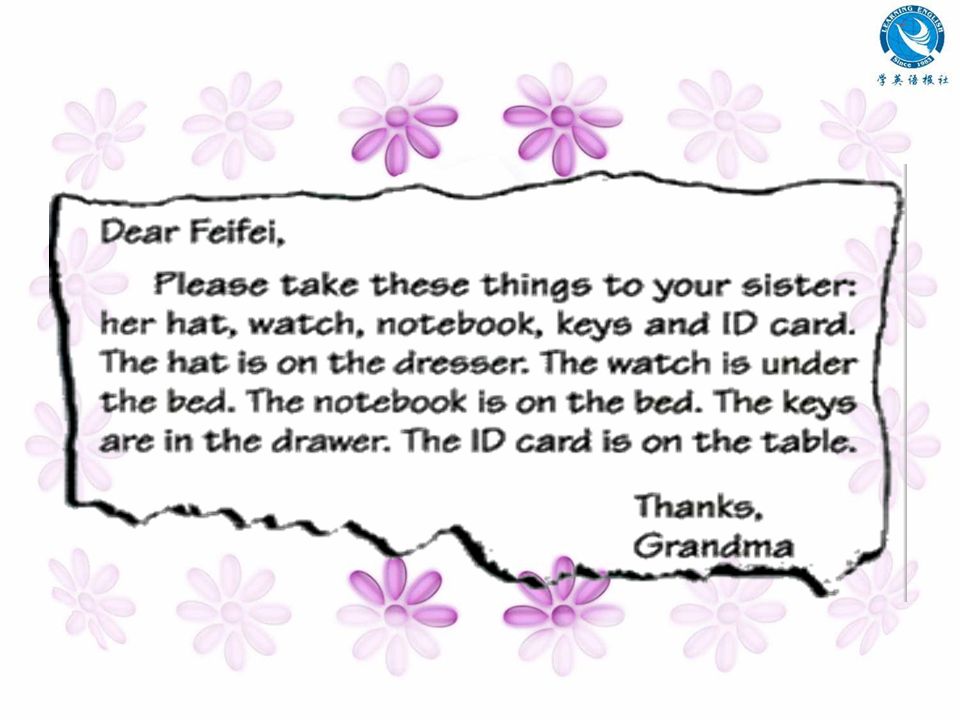 LEARNING ENGLISH
Since 1983
学英语报社
Dear Feifei,
Please take these things to your sister:
her hat, watch, notebook, keys and ID card.
The hat is on the dresser. The watch is under
the bed. The notebook is on the bed. The keys
are in the drawer. The ID card is on the table.
Thanks,
Grandma